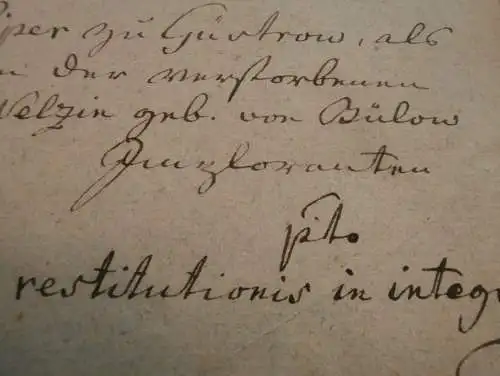 iper zu Güstrow, als
n der verstorbenen
Velzie geb. von Bülow
Imploranten
pto
restitutionis in integr